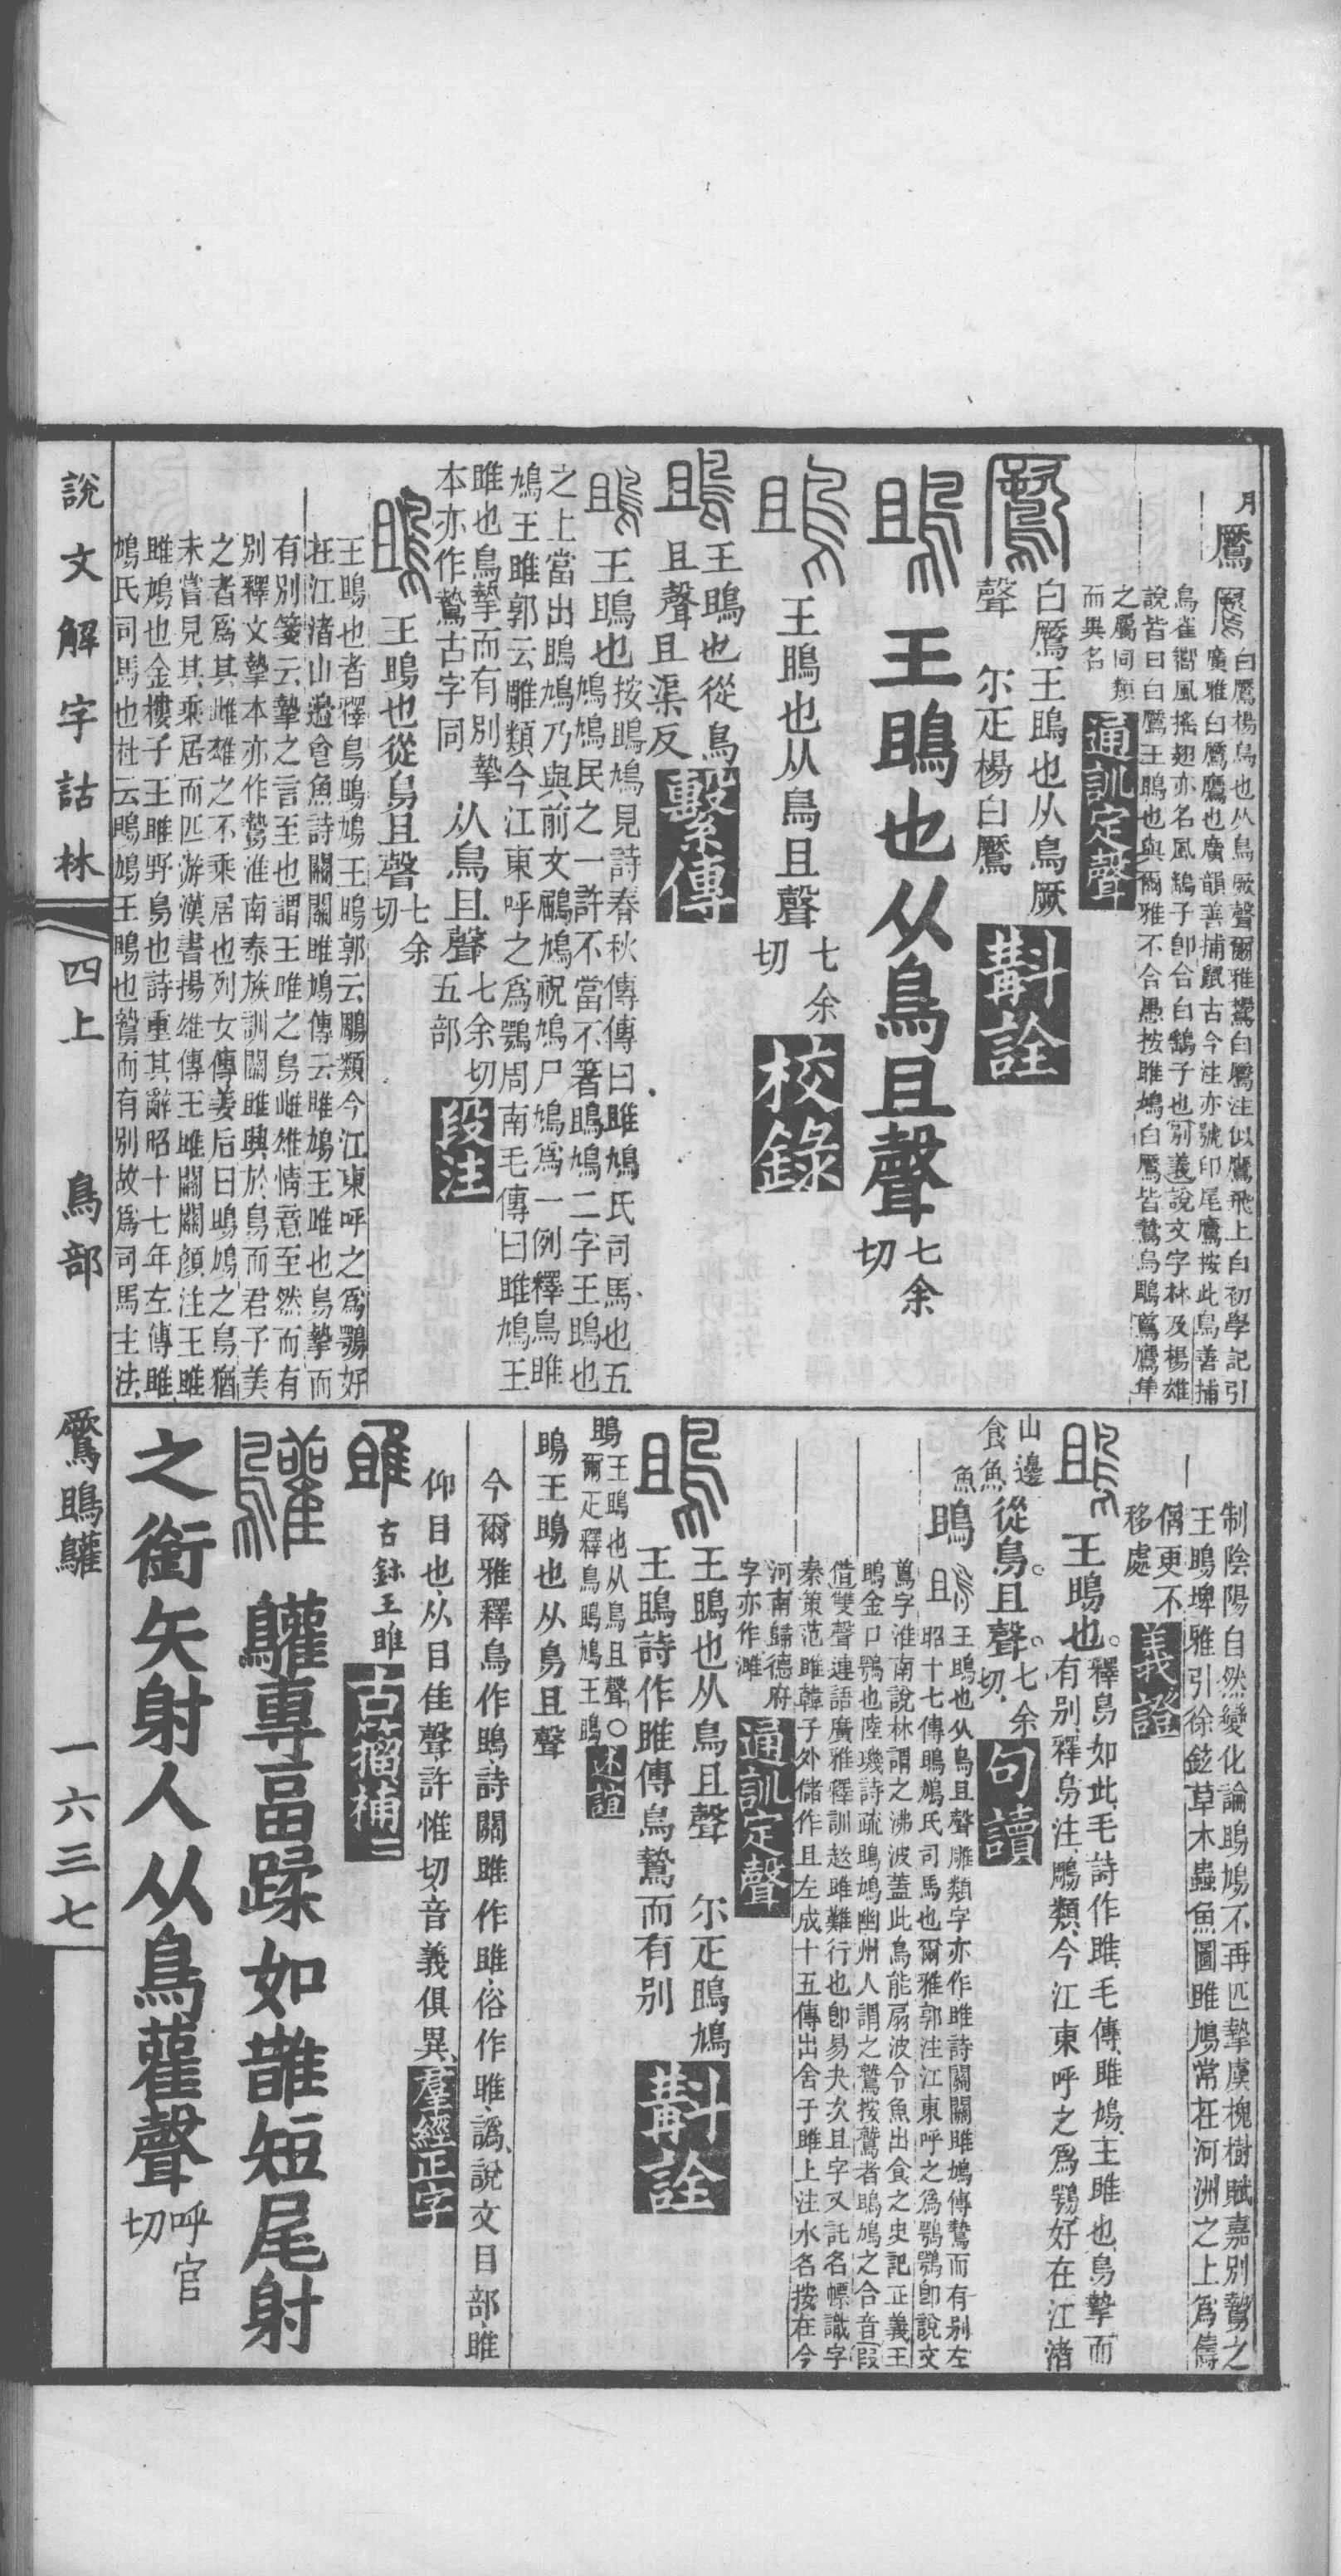 月
鷢
白鷢楊鳥也从鳥厥聲爾雅鸉白鷢注似鷹飛上白初學記引
廣雅白鷢鷹也廣韻善捕鼠古今注亦號印尾鷹按此鳥善捕
鳥雀嚮風搖翅亦名風鷂子卽合白鷂子也別義說文字林及楊雄
說皆曰白鷢王鴡也與爾雅不合愚按雎鳩白鷢皆鷙鳥鵰鷻鷹隼
之屬同類
而異名
通訓定聲
白鷢王鴡也从鳥厥
聲 尒疋楊白鷢
斠詮
王鴡也从鳥且聲
七余
切
王鴡也从鳥且聲
七余
切
校錄
王鴡也從鳥
且聲且渠反
繫傳
王鴡也
按鴡鳩見詩春秋傳傳曰雎鳩氏司馬也五
鳩鳩民之一許不當不箸鴡鳩二字王鴡也
之上當出鴡鳩乃與前文鶌鳩祝鳩尸鳩爲一例釋鳥雎
鳩王雎郭云雕類今江東呼之爲鶚周南毛傳曰雎鳩王
雎也鳥摯而有別摯
本亦作鷙古字同
从鳥且聲
七余切
五部
段注
王鴡也從鳥且聲
七余
切
王鴡也者釋鳥鴡鳩王鴡郭云鵰類今江東呼之爲鶚好
在江渚山邊食魚詩關關雎鳩傳云雎鳩王雎也鳥摯而
有別箋云摯之言至也謂王雎之鳥雌雄情意至然而有
別釋文摯本亦作鷙淮南泰族訓關雎興於鳥而君子美
之者爲其雌雄之不乘居也列女傳姜后曰鴡鳩之鳥猶
未嘗見其乘居而匹游漢書揚雄傳王雎關關顔注王雎
雎鳩也金樓子王雎野鳥也詩重其辭昭十七年左傳雎
鳩氏司馬也杜云鴡鳩王鴡也鷙而有別故爲司馬主法
制陰陽自然變化論鴡鳩不再匹摯虞槐樹賦嘉別鷙之
王鴡埤雅引徐鉉草木蟲魚圖雎鳩常在河洲之上爲儔
偶更不
移處
義證
王鴡也。
釋鳥如此毛詩作雎毛傳雎鳩王雎也鳥摯而
有別釋鳥注鵰類今江東呼之爲鶚好在江渚
山邊
食魚
從鳥。且聲。
七余
切
句讀
魚
鴡
王鴡也从鳥且聲雕類字亦作雎詩關關雎鳩傳鷙而有別左
昭十七傳鴡鳩氏司馬也爾雅郭注江東呼之爲鶚鶚卽說文
鷻字淮南說林謂之沸波蓋此鳥能扇波令魚出食之史記正義王
鴡金口鶚也陸璣詩疏鴡鳩幽州人謂之鷲按鷲者鴡鳩之合音叚
借雙聲連語廣雅釋訓趑雎難行也卽易夬次且字又託名幖識字
秦策范雎韓子外儲作且左成十五傳出舍于雎上注水名按在今
河南歸德府
字亦作濉
通訓定聲
王鴡也从鳥且聲 尒疋鴡鳩
王鴡詩作雎傳鳥鷙而有別
斠詮
鴡
王鴡也从鳥且聲○
爾疋釋鳥鴡鳩王鴡
述誼
鴡王鴡也从鳥且聲
今爾雅釋鳥作鴡詩關雎作雎俗作睢譌說文目部睢
仰目也从目隹聲許惟切音義俱異
羣經正字
古鉨王雎
古籀補二
鸛專畐蹂如䧿短尾射
之銜矢射人从鳥雚聲
呼官
切
說文解字詁林
四上
鳥部
鷢鴡鸛
一六三七